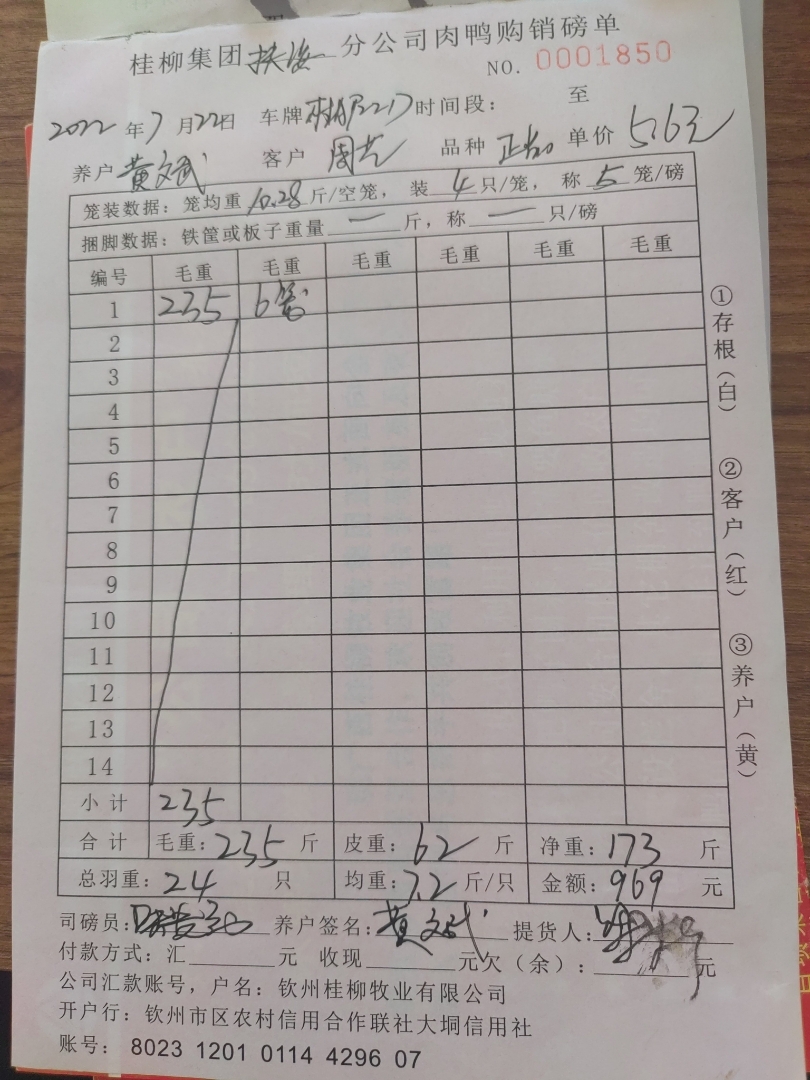 桂柳集团 分公司肉鸭购销磅单
NO. 0001850
2022年7月22日 车牌 2217 时间段： 至
养户 黄文武 客户 周 品种 正 单价 5.6元
笼装数据：笼均重 10.28 斤/空笼， 装 4 只/笼， 称 5 笼/磅
捆脚数据：铁筐或板子重量 — 斤，称 — 只/磅
编号 毛重 毛重 毛重 毛重 毛重 毛重
1 235 6笼
2
3
4
5
6
7
8
9
10
11
12
13
14
小计 235
合计 毛重：235 斤 皮重：62 斤 净重：173 斤
总羽重：24 只 均重：7.2 斤/只 金额：969 元
司磅员： 养户签名：黄文武 提货人：
付款方式：汇 元 收现 元欠（余）： 元
公司汇款账号，户名：钦州桂柳牧业有限公司
开户行：钦州市区农村信用合作联社大垌信用社
账号： 8023 1201 0114 4296 07
①存根（白）
②客户（红）
③养户（黄）